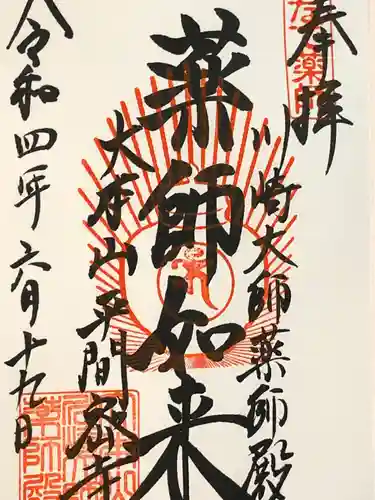 奉拝
川崎大師薬師殿
薬師如来
大本山平間密寺
令和四年六月十九日
薬師殿